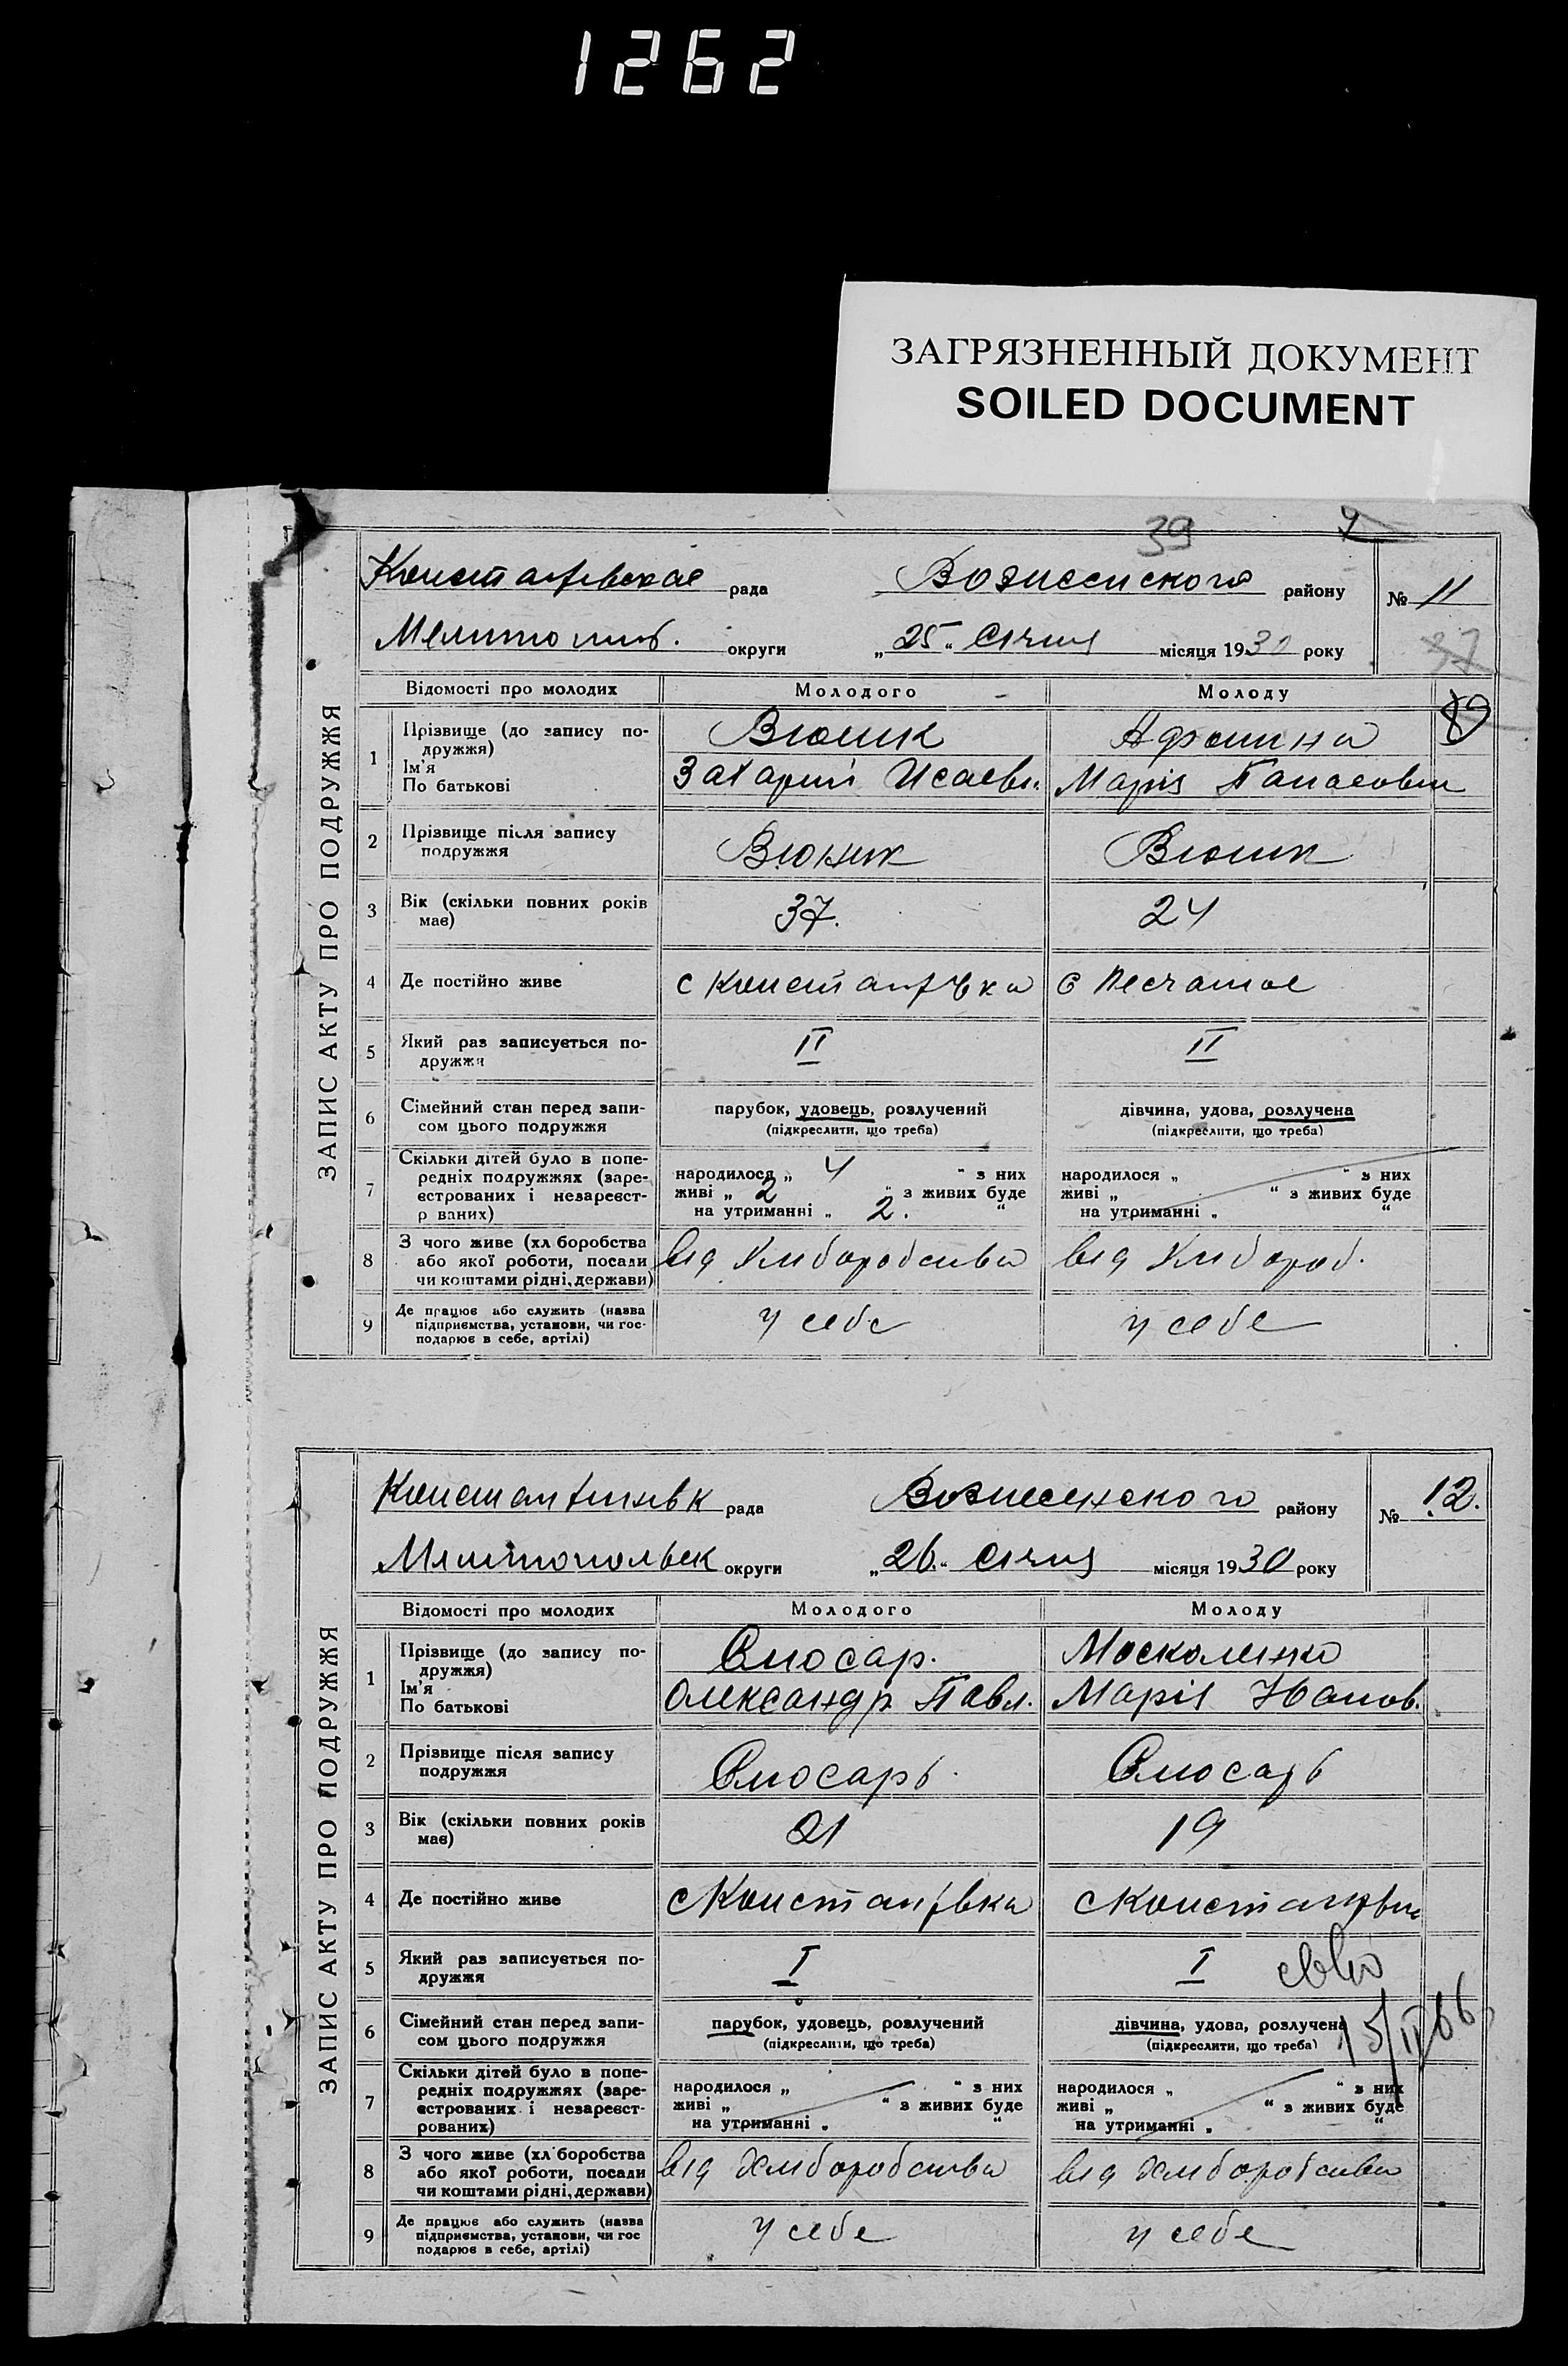 1262
ЗАГРЯЗНЕННЫЙ ДОКУМЕНТ
SOILED DOCUMENT
39
ЗАПИС АКТУ ПРО ПОДРУЖЖЯ
рада Вознесенского району № 11
Мелитопил. округи „25“ Січня місяця 1930 року
37
Відомості про молодих Молодого Молоду
1 Прізвище (до запису подружжя) Вюник Афонина
Ім'я
По батькові Захарий Исаев. Марія Панасовн
2 Прізвище після запису подружжя Вюник Вюник
3 Вік (скільки повних років має) 37. 24
4 Де постійно живе с с Песчаное
5 Який раз записується подружжя II II
6 Сімейний стан перед записом цього подружжя парубок, удовець, розлучений дівчина, удова, розлучена
(підкреслити, що треба) (підкреслити, що треба)
7 Скільки дітей було в попередніх подружжях (зареєстрованих і незареєстр ваних) народилося „ 4 “ з них народилося „ “ з них
живі „ 2 „ з живих буде живі „ “ з живих буде
на утриманні „ 2. “ на утриманні „ “
8 З чого живе (хл боробства або якої роботи, посади чи коштами рідні, держави) від Хлиборобства від Хлибороб.
9 Де працює або служить (назва підприємства, установи, чи господарює в себе, артілі) у себе у себе
ЗАПИС АКТУ ПРО ПОДРУЖЖЯ
Константинівк рада Вознесенского району № 12.
Мелитопольск округи „26.“ Січня місяця 1930 року
Відомості про молодих Молодого Молоду
1 Прізвище (до запису подружжя) Слюсар. Москаленко
Ім'я
По батькові Олександр Павл. Марія Иванов.
2 Прізвище після запису подружжя Слюсарь Слюсарь
3 Вік (скільки повних років має) 21 19
4 Де постійно живе с с
5 Який раз записується подружжя I I
6 Сімейний стан перед записом цього подружжя парубок, удовець, розлучений дівчина, удова, розлучена
(підкреслити, що треба) (підкреслити, що треба)
7 Скільки дітей було в попередніх подружжях (зареєстрованих і незареєстрованих) народилося „ “ з них народилося „ “ з них
живі „ “ з живих буде живі „ “ з живих буде
на утриманні „ “ на утриманні „ “
8 З чого живе (хл боробства або якої роботи, посади чи коштами рідні, держави) від Хлиборобства від Хлиборобства
9 Де працює або служить (назва підприємства, установи, чи гос подарює в себе, артілі) у себе у себе